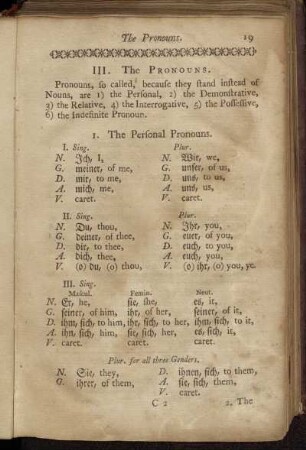 The Pronouns. 19
III. The PRONOUNS.
Pronouns, so called, because they stand instead of
Nouns, are 1) the Personal, 2) the Demonstrative,
3) the Relative, 4) the Interrogative, 5) the Possessive,
6) the Indefinite Pronoun.
1. The Personal Pronouns.
I. Sing. Plur.
N. Ich, I, N. Wir, we,
G. meiner, of me, G. unser, of us,
D. mir, to me, D. uns, to us,
A. mich, me, A. uns, us,
V. caret. V. caret.
II. Sing. Plur.
N. Du, thou, N. Ihr, you,
G. deiner, of thee, G. euer, of you,
D. dir, to thee, D. euch, to you,
A. dich, thee, A. euch, you,
V. (o) du, (o) thou, V. (o) ihr, (o) you, ye.
III. Sing.
Mascul. Femin. Neut.
N. Er, he, sie, she, es, it,
G. seiner, of him, ihr, of her, seiner, of it,
D. ihm, sich, to him, ihr, sich, to her, ihm, sich, to it,
A. ihn, sich, him, sie, sich, her, es, sich, it,
V. caret. caret. caret.
Plur. for all three Genders.
N. Sie, they, D. ihnen, sich, to them,
G. ihrer, of them, A. sie, sich, them,
V. caret.
C 2 2. The